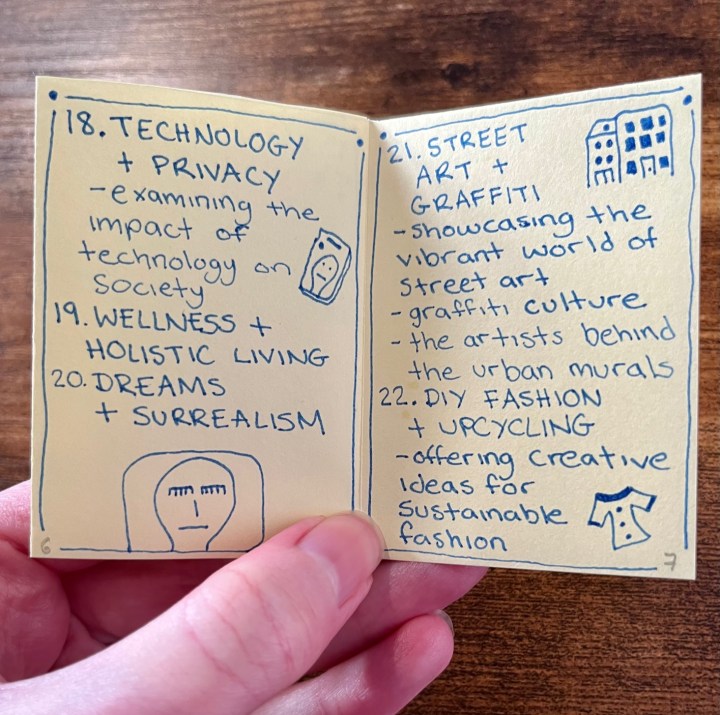 18. TECHNOLOGY
+ PRIVACY
- examining the
impact of
technology on
society
19. WELLNESS +
HOLISTIC LIVING
20. DREAMS
+ SURREALISM
6
21. STREET
ART +
GRAFFITI
- showcasing the
vibrant world of
street art
- graffiti culture
- the artists behind
the urban murals
22. DIY FASHION
+ UPCYCLING
- offering creative
ideas for
sustainable
fashion
7